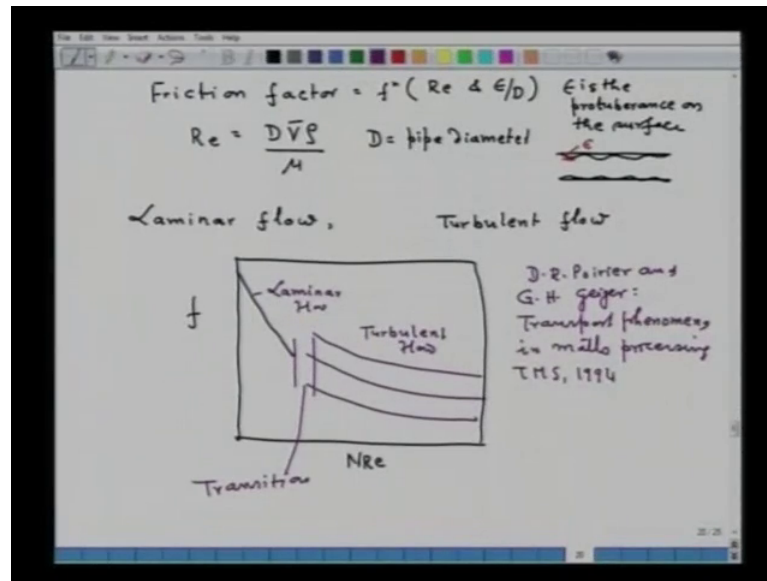 File Edit View Insert Actions Tools Help
Friction factor = fⁿ ( Re & ϵ/D)
ϵ is the
protuberance on
the surface
Re = D V̄ ρ / μ
D = pipe diameter
ϵ
Laminar flow,
Turbulent flow
f
Laminar
flow
Turbulent
flow
Transition
NRe
D.R. Poirier and
G.H geiger:
Transport phenomena
in matls processing
TMS, 1994
25/25
25